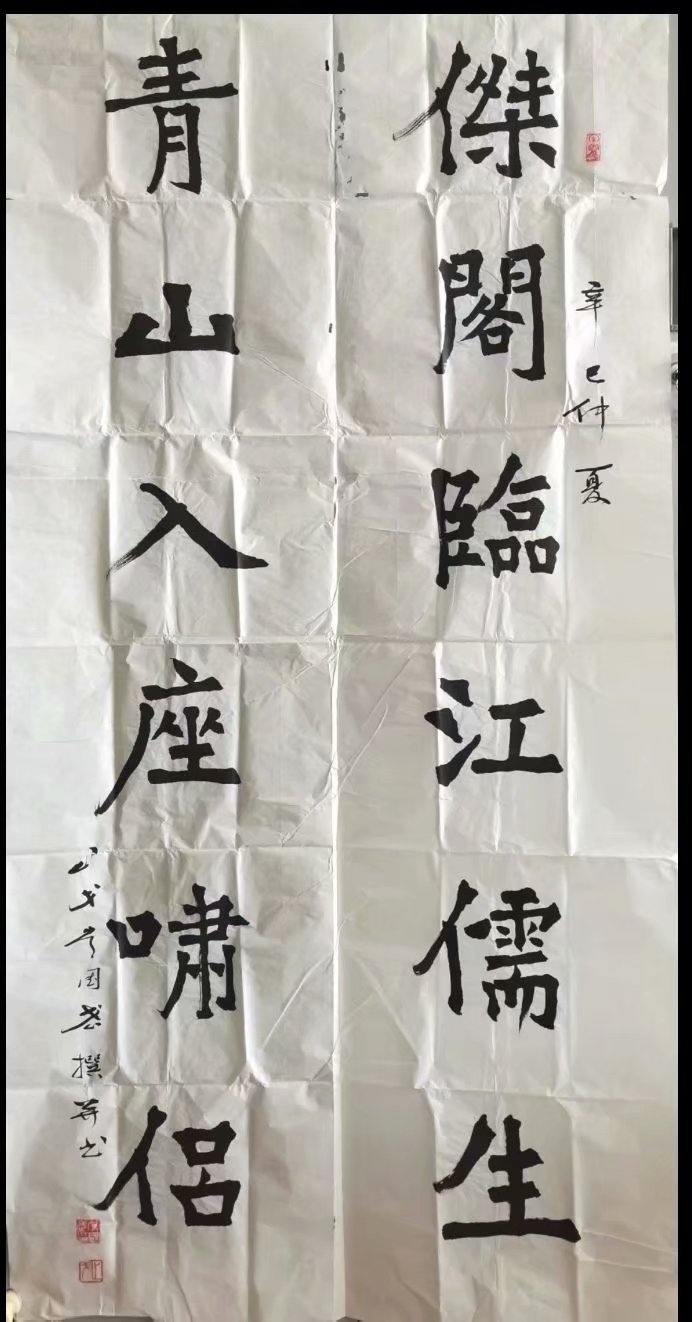 傑閣臨江儒生
辛巳仲夏
青山入座嘯侶
撰并书